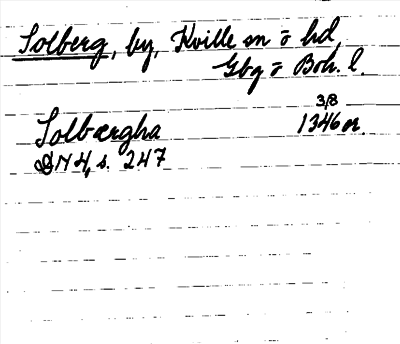 Solberg, by, Kville sn o hd,
Gbg o Boh. l.
3/8
Solbærgha 1346 or.
DN 4, s. 247